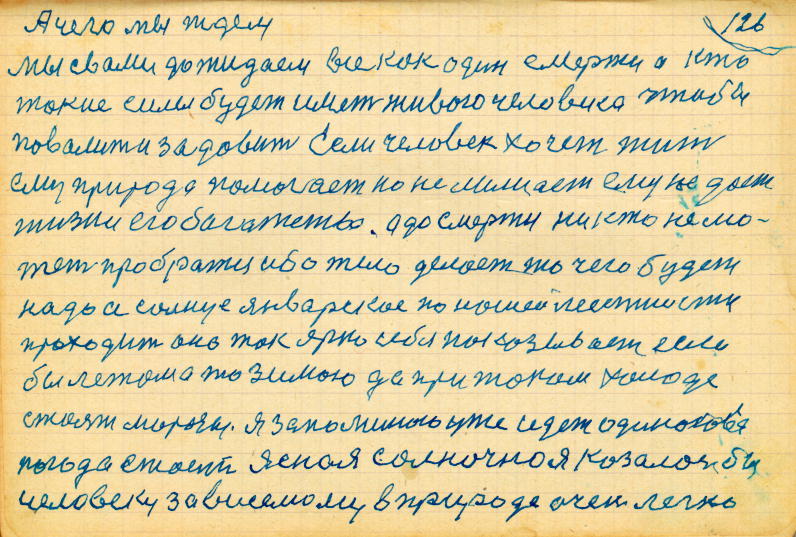 А чего мы ждем
126
мы свами дожидаем все как один смерти а кто
такие силы будет имет живого человика чтобы
повалит и задовит Если человек хочет жит
ему природа помогает но не мишает ему не дает
жизни его багатство. а до смерти никто не мо-
жет
ибо тело делает то чего будет
надо а солнце январское по нашей местности
проходит оно так ярко себя показывает если
бы летом а то зимою да при таком холоде
стоят морозы. я запоминаю уже идет одинаковая
погода стоит ясная солночная козалос бы
человеку зависемому в природе очен легко